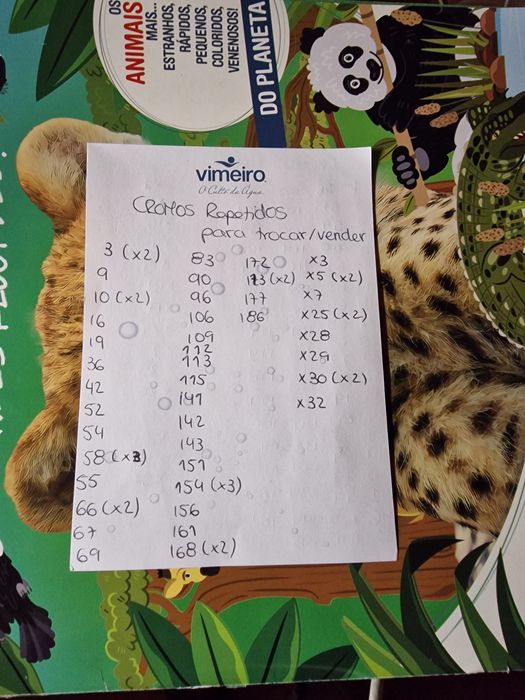 OS
ANIMAIS
MAIS...
ESTRANHOS,
RÁPIDOS,
PEQUENOS,
COLORIDOS,
VENENOSOS!
DO PLANETA
vimeiro
O Culto da Água
CROMOS Repetidos
para trocar/vender
3 (x2)
9
10 (x2)
16
19
36
42
52
54
58 (x3)
55
66 (x2)
67
69
83
90
96
106
109
112
113
115
141
142
143
151
154 (x3)
156
161
168 (x2)
172
173 (x2)
177
186
x3
x5 (x2)
x7
x25 (x2)
x28
x29
x30 (x2)
x32